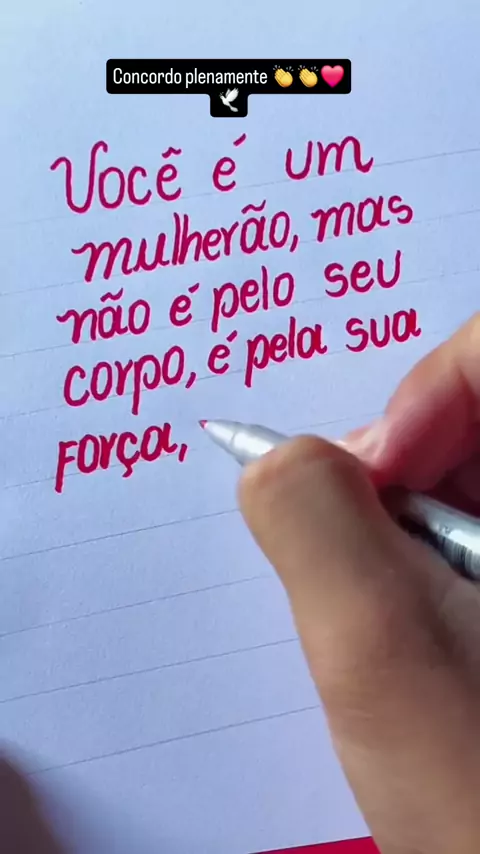 Concordo plenamente 👏👏❤️
🕊️
Você é um
mulherão, mas
não é pelo seu
corpo, é pela sua
força,